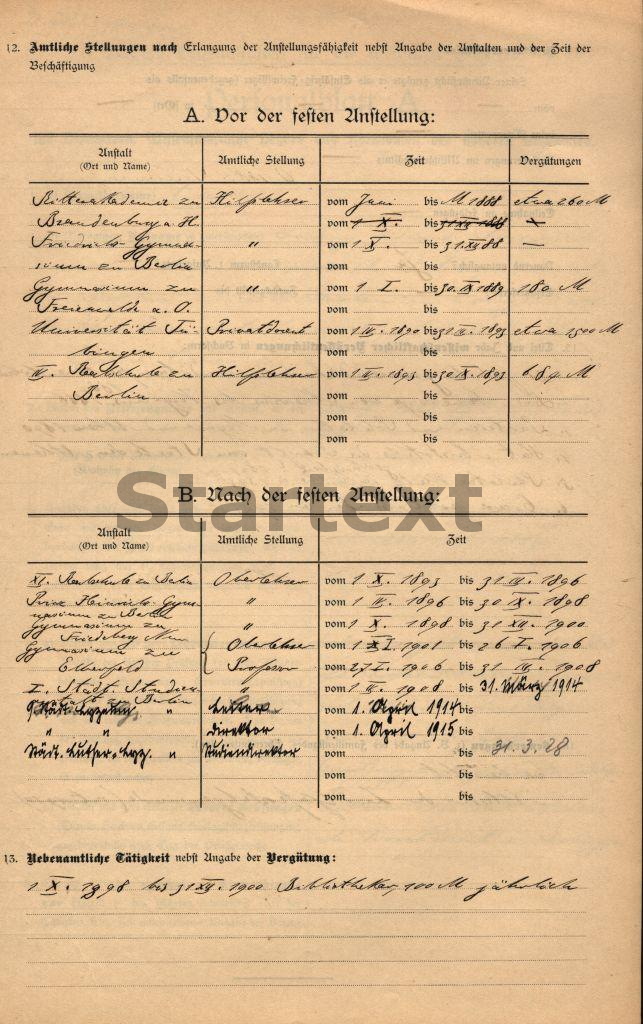 12. Amtliche Stellungen nach Erlangung der Anstellungsfähigkeit nebst Angabe der Anstalten und der Zeit der
Beschäftigung
A. Vor der festen Anstellung:
Anstalt Amtliche Stellung Zeit Vergütungen
(Ort und Name)
Ritterakademie zu Hilfslehrer vom Juni bis M 1888 etwa 260 M
Brandenburg a. H. vom 1 X. bis 31 XII 1888
Friedrichs-Gymna- " vom 1 X. bis 31 XII 88 —
sium zu Berlin vom bis
Gymnasium zu " vom 1 I. bis 30. IX 1889 180 M
Freienwalde a. O. vom bis
Universität Tü- Privatdocent vom 1 1890 bis 31 1893 etwa 1500 M
bingen vom bis
Realschule zu Hilfslehrer vom 1 1893 bis 30 IX. 1893 M
Berlin vom bis
vom bis
vom bis
Startext
B. Nach der festen Anstellung:
Anstalt Amtliche Stellung Zeit
(Ort und Name)
XI. Realschule zu Berlin Oberlehrer vom 1 X. 1893 bis 31 1896
Prinz Heinrichs-Gym- " vom 1 1896 bis 30 IX. 1898
nasium zu Berlin
Gymnasium zu " vom 1 X. 1898 bis 31 XII. 1900
Friedeberg Nm
Gymnasium zu Oberlehrer vom 1 I. 1901 bis 26 I. 1906
Elberfeld Professor vom 27 I. 1906 bis 31 1908
I. Städt. Studien- " vom 1 1908 bis 31. März 1914
Berlin
Städt. Lyzeum " Leiter vom 1. April 1914 bis
" " Direktor vom 1. April 1915 bis
Städt. Luther-Lyz. " Studiendirektor vom bis 31.3.28
vom bis
vom bis
13. Nebenamtliche Tätigkeit nebst Angabe der Vergütung:
1 X. 1898 bis 31 XII. 1900 Bibliothekar, 100 M jährlich